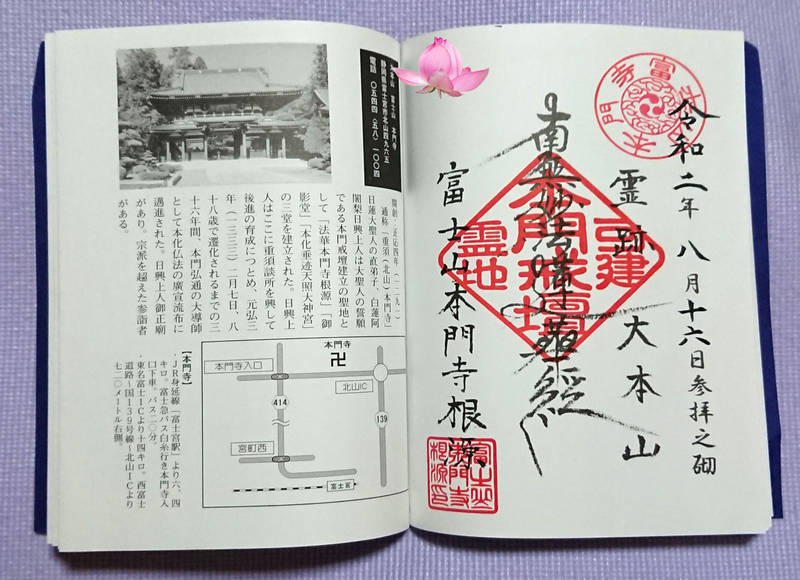 令和二年八月十六日参拝之砌
霊跡 大本山
南無妙法蓮華経
富士山本門寺根源
本門戒壇
霊地
富士山
本門寺
大本山 富士山 本門寺
静岡県富士宮市北山四九六五
電話 〇五四四(五八)一〇〇四
開創・正応四年(一二九一)
通称「重須(北山)本門寺」
日蓮大聖人の直弟子、白蓮阿
闍梨日興上人は大聖人の誓願
である本門戒壇建立の聖地と
して「法華本門寺根源」「御
影堂」「本化垂迹天照大神宮」
の三堂を建立された。日興上
人はここに重須談所を興して
後進の育成につとめ、元弘三
年(一三三三)二月七日、八
十八歳で遷化されるまでの三
十六年間、本門弘通の大導師
として本化仏法の廣宣流布に
邁進された。日興上人御正廟
があり。宗派を超えた参詣者
がある。
本門寺
卍
本門寺入口
北山IC
414
139
宮町西
富士宮
【本門寺】
・JR身延線「富士宮駅」より六、四
キロ。富士急バス白糸行き本門寺入
口下車。バス二〇分。
・東名富士ICより十四キロ。西富士
道路〜国139号線〜北山ICより
七二〇メートル右側。